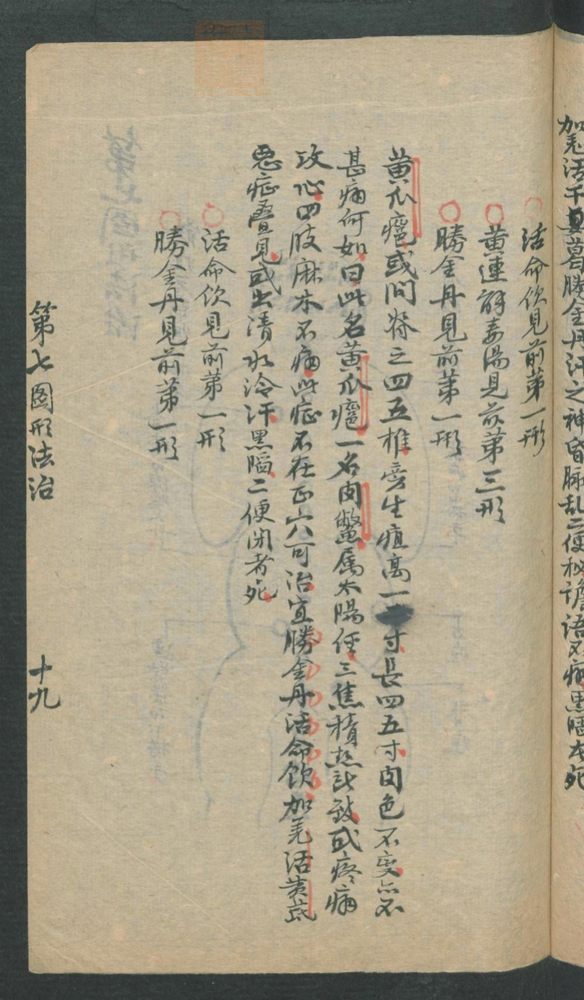 加羌活干葛勝金丹汗之神昏脈乱二便秘譫语不痛黑陷者死
活命飲見前第一形
黄連解毒湯見前第三形
勝金丹見前第一形
黄瓜癰或问脊之四五椎旁生疽高一寸長四五寸肉色不变亦不
甚痛何如曰此名黄瓜癰一名肉鱉属太陽经三焦積热所致或疼痛
攻心四肢麻木不痛此症不在正穴可治宜勝金丹活命飲加羌活黄芪
恶症疊見或出清水冷汗黑陷二便闭者死
活命飲見前第一形
勝金丹見前第一形
第七圖形法治
十九